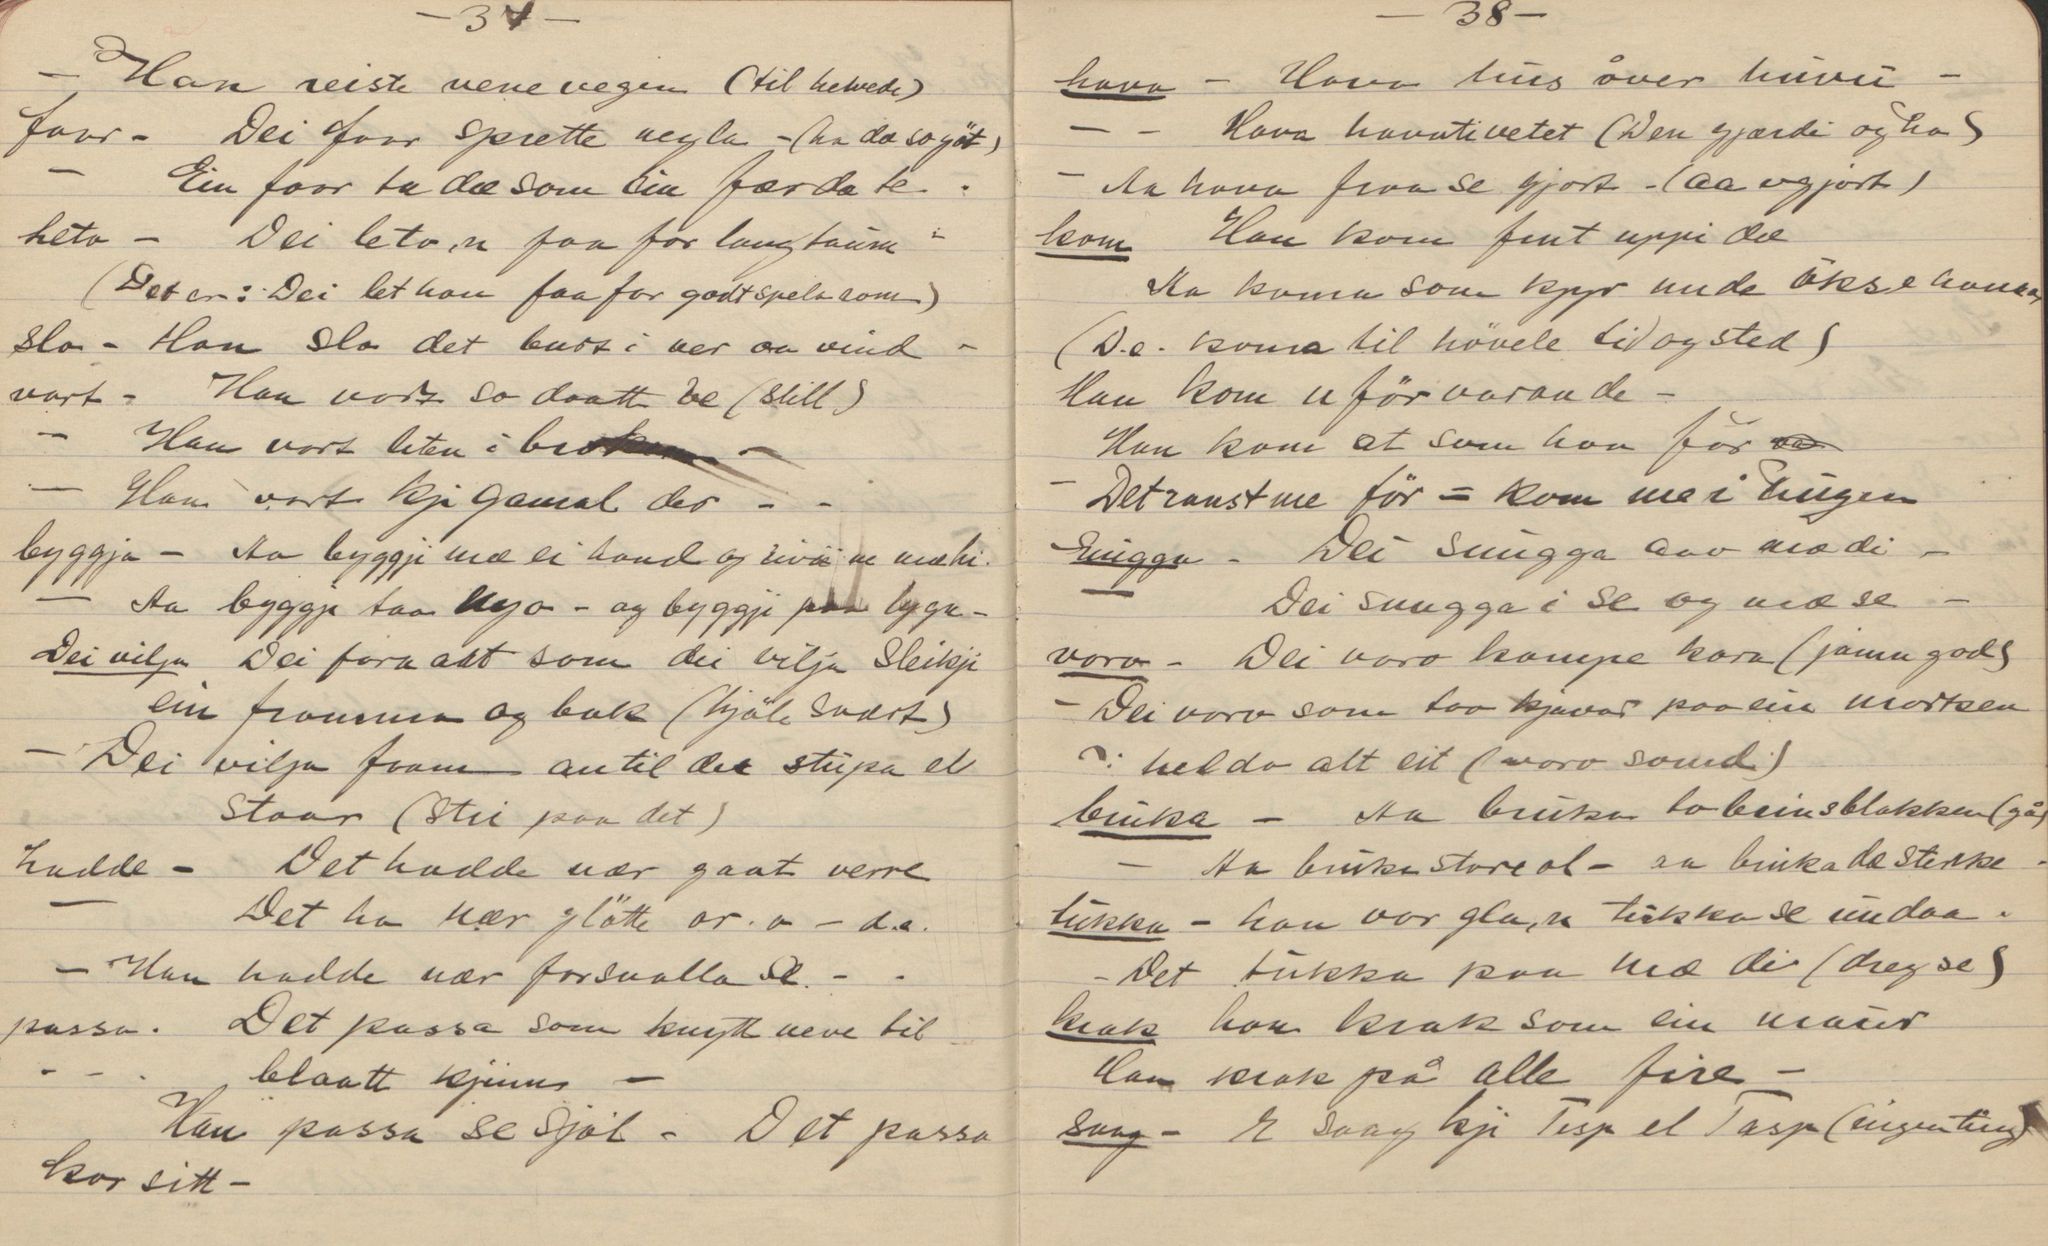 - 37 -
- Han reiste nene vegen (til helvede)
faar - Dei faar sprette negla - (ha dæ so gøt)
- Ein faar ta dæ som ein fær da te -
leto - Dei leto, n faa for lang taum -
(Det er: Dei let han faa for godt spelarom)
Slo - Han slo det burt i ver aa vind -
vart - Han vart so daatt ve (still)
- Han vart liten i broken -
- Han vart kji gamal der - -
byggja - Aa byggji mæ ei hand og rivü ne mæ hi.
- Aa byggje taa nyo - og byggji paa lygn -
Dei vilja Dei fara att som dei vilja Sleikji
ein framma og bak (hjåle svart)
- Dei vilja fram antil dei stupa el
staar (stri paa det)
hadde - Det hadde nær gaat verre
- Det ha nær glötte or. o - d.e.
- Han hadde nær forsnalla se - -
passa. Det passa som knytt neve til
- - . blaatt kjinn -
Han passa se sjøl - Det passa
kor sitt -
- 38 -
hava - Hava hus åver huvü -
- - Hava havativetet (Den gjærdi og ha)
- Aa hava fraa se gjort - (aa ugjort)
kom Han kom fint uppi dæ
Aa koma som kyr unde ökse hamar
(D.e. koma til hövele tid og sted)
Han kom uförvarande -
Han kom at som han för
- Det ranst me för = kom me i hugen
Snugga - Dei snugga aav mæ di -
- Dei snugga i se og mæ se -
voro - Dei voro kampe kara (jamn god)
- Dei voro som too kjavar paa ein mortsen
ɔ: heldo att eit (voro samde)
bruka - Aa bruka tobeinsblakken (gå)
- Aa bruka store ol - aa bruka dæ sterke -
tukka - han var gla, n tukka se undaa -
- Det tukka paa mæ di (dreg se)
krak han krak som ein maur
Han krak på alle fire -
saag - E saag kji Tisp el Tasp (ingenting)